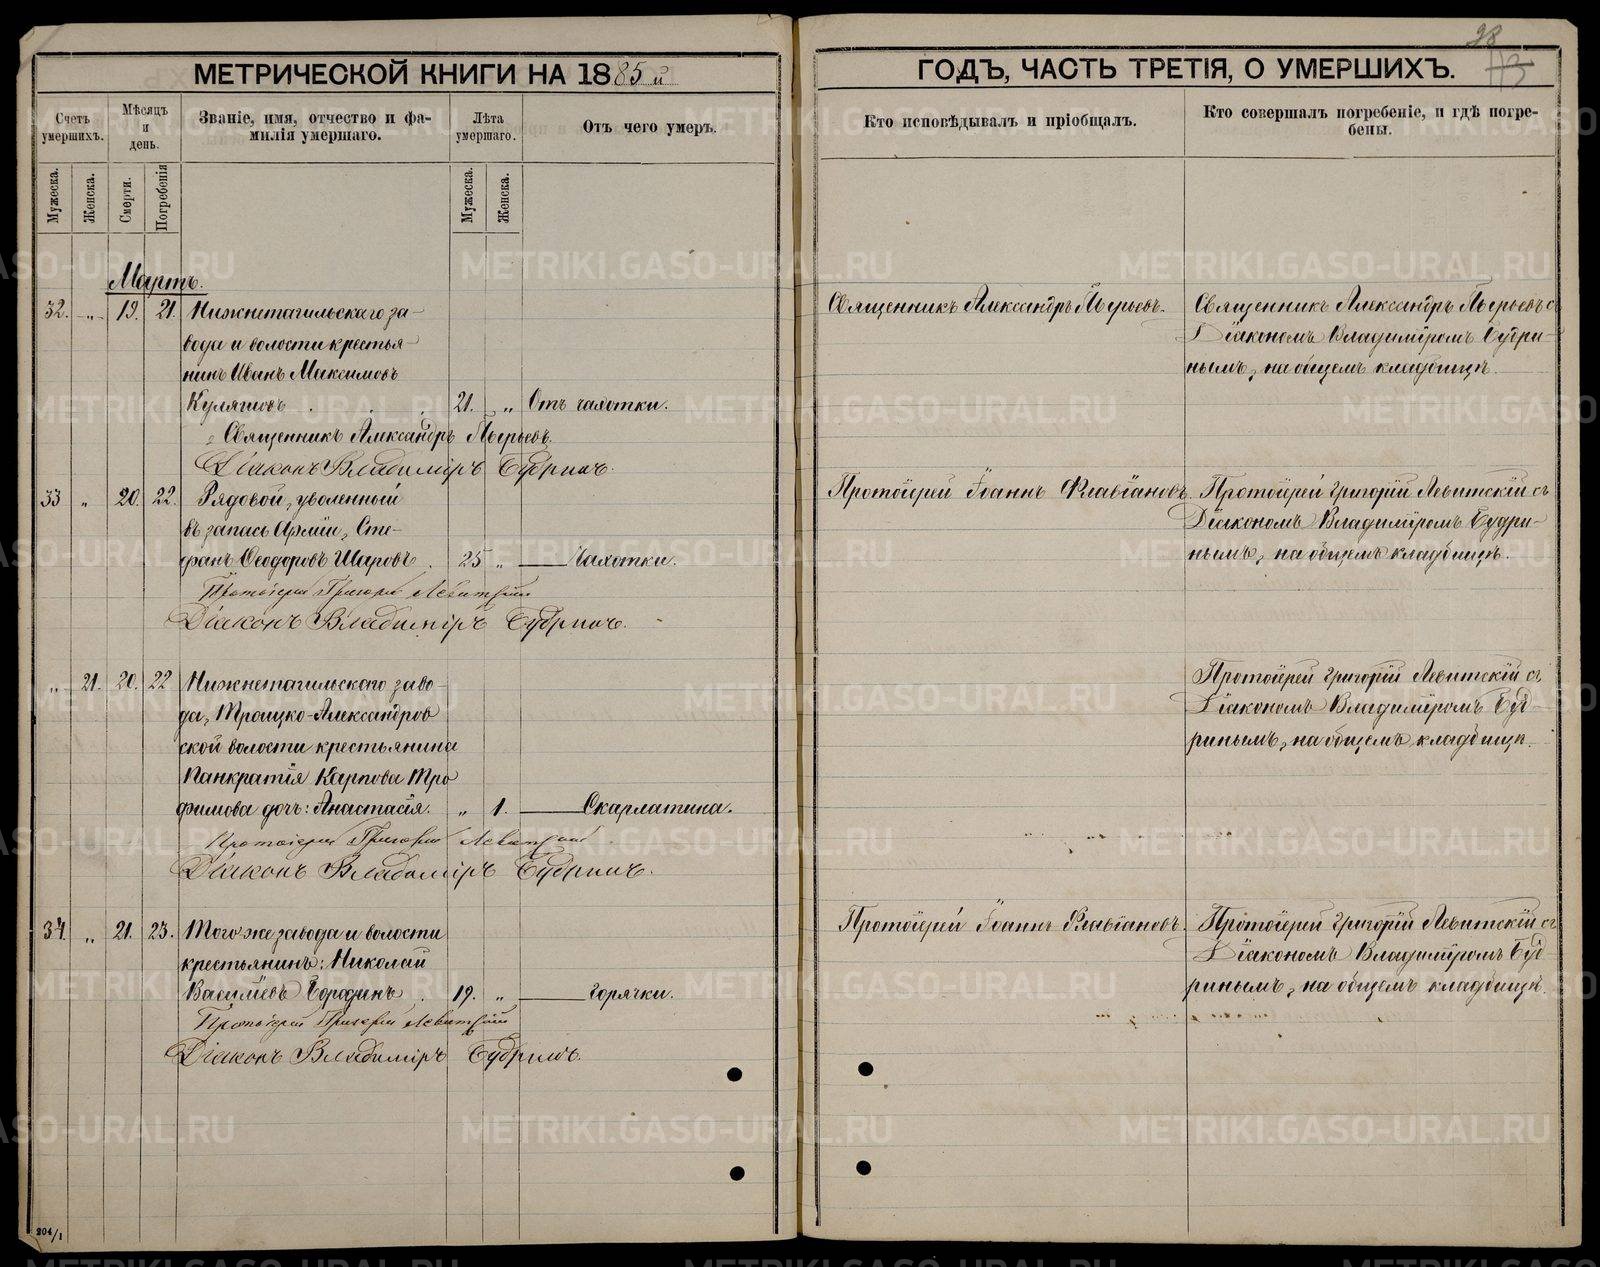 МЕТРИЧЕСКОЙ КНИГИ НА 1885 й
Счетъ умершихъ.
Мѣсяцъ и день.
Званіе, имя, отчество и фа-
милія умершаго.
Лѣта умершаго.
Отъ чего умеръ.
Мужеска.
Женска.
Смерти.
Погребенія
Мужеска.
Женска.
Мартъ.
32. „ 19. 21. Нижнетагильскаго за-
вода и волости крестья-
нинъ Иванъ Максимовъ
Куляшовъ . . . 21. „ Отъ чахотки.
Священникъ Александръ
Діаконъ Владиміръ Будринъ.
33 „ 20. 22. Рядовой, уволенный
въ запасъ Арміи, Сте-
фанъ Ѳеодоровъ Шаровъ . 25 „ — Чахотки.
Протоіерей Григорій Левитскій
Діаконъ Владиміръ Будринъ.
„ 21. 20. 22 Нижнетагильскаго заво-
да, Троицко-Александров
ской волости крестьянина
Панкратія Карпова Тро
фимова дочь: Анастасія. „ 1. — Скарлатина.
Протоіерей Григорій Левитскій
Діаконъ Владиміръ Будринъ.
34. „ 21. 23. Того же завода и волости
крестьянинъ: Николай
Василіевъ Бородинъ . 19. „ — горячки.
Протоіерей Григорій Левитскій
Діаконъ Владиміръ Будринъ.
204/1
28
ГОДЪ, ЧАСТЬ ТРЕТІЯ, О УМЕРШИХЪ.
Кто исповѣдывалъ и пріобщалъ.
Кто совершалъ погребеніе, и гдѣ погре-
бены.
Священникъ Александръ
Священникъ Александръ съ
Діакономъ Владиміромъ Будри-
нымъ, на общемъ кладбищѣ.
Протоіерей Іоаннъ Флавіановъ.
Протоіерей Григорій Левитскій съ
Діакономъ Владиміромъ Будри-
нымъ, на общемъ кладбищѣ.
Протоіерей Григорій Левитскій съ
Діакономъ Владиміромъ Буд-
ринымъ, на общемъ кладбищѣ.
Протоіерей Іоаннъ Флавіановъ.
Протоіерей Григорій Левитскій съ
Діакономъ Владиміромъ Буд
ринымъ, на общемъ кладбищѣ.
METRIKI.GASO-URAL.RU